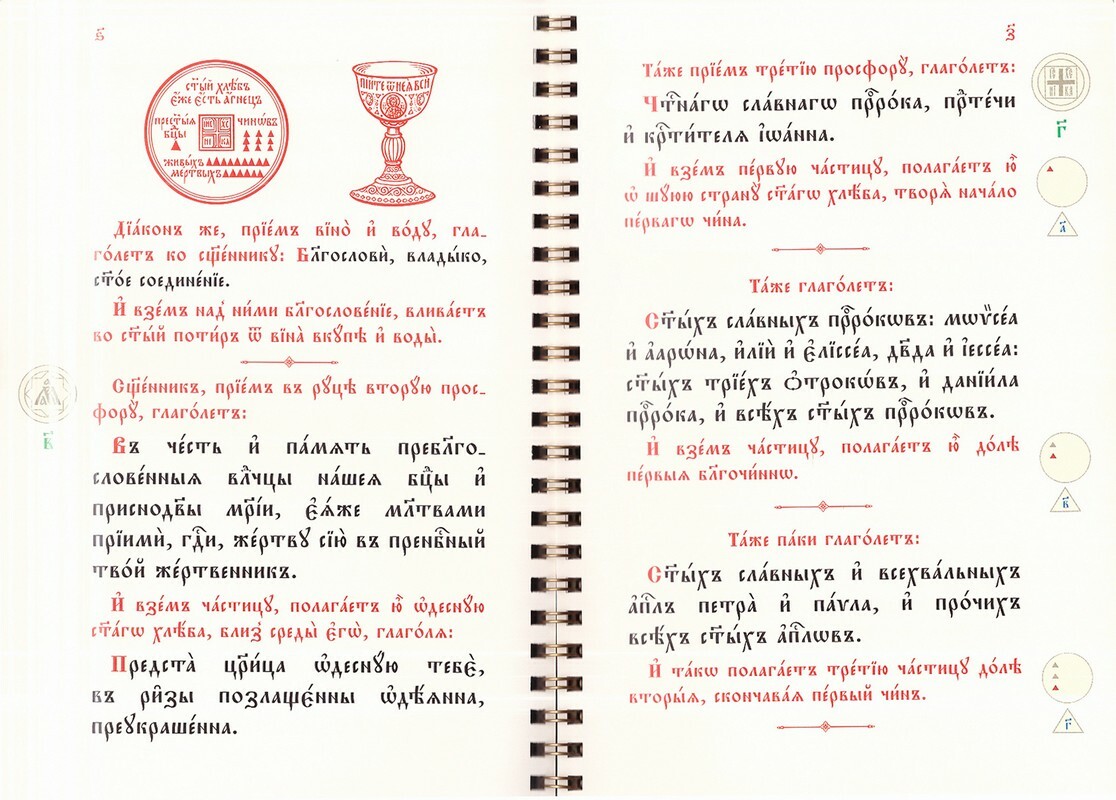 ѕ҃
ст҃ы́й хлѣ́бъ
є҆́же є҆́сть а҆́гнецъ
прест҃ы́ѧ
бц҃ы
І҆С ХС
НИ КА
чинѡ́въ
живы́хъ
ме́ртвыхъ
ПІ́ЙТЕ Ѿ НЕѦ̀ ВСЍ
Дїа́конъ же, прїе́мъ вїно̀ и҆ во́дꙋ, гла-
го́летъ ко сщ҃е́нникꙋ: Бл҃гословѝ, влады́ко,
ст҃о́е соедине́нїе.
И҆ взе́мъ над̾ ни́ми бл҃гослове́нїе, влива́етъ
во ст҃ы́й поти́ръ ѿ вїна̀ вкꙋ́пѣ и҆ воды̀.
Сщ҃е́нникъ, прїе́мъ въ рꙋцѣ̀ вторꙋ́ю прос-
форꙋ̀, глаго́летъ:
в҃
Въ че́сть и҆ па́мѧть пребл҃го-
слове́нныѧ влⷣчцы на́шеѧ бц҃ы и҆
приснодв҃ы мр҃і́и, є҆ѧ́же мл҃твами
прїимѝ, гдⷭ҇и, же́ртвꙋ сїю̀ въ пренбⷭ҇ный
тво́й же́ртвенникъ.
И҆ взе́мъ части́цꙋ, полага́етъ ю҆̀ ѡ҆деснꙋ́ю
ст҃а́гѡ хлѣ́ба, бли́з̾ среды̀ є҆гѡ̀, глаго́лѧ:
Предста̀ цр҃и́ца ѡ҆деснꙋ́ю тебє̀,
въ ри̑зы позлаще́нны ѡ҆дѣ́ѧнна,
преꙋкраше́нна.
з҃
Та́же прїе́мъ тре́тїю просфорꙋ̀, глаго́летъ:
І҆С ХС
НИ КА
г҃
Чтⷭ҇на́гѡ сла́внагѡ прⷪ҇ро́ка, прⷣте́чи
и҆ крⷭ҇ти́телѧ і҆ѡа́нна.
И҆ взе́мъ пе́рвꙋю части́цꙋ, полага́етъ ю҆̀
ѡ҆ шꙋ́юю странꙋ̀ ст҃а́гѡ хлѣ́ба, творѧ̀ нача́ло
пе́рвагѡ чи́на.
а҃
Та́же глаго́летъ:
Ст҃ы́хъ сла́вныхъ прⷪ҇ро́кѡвъ: мѡѷсе́а
и҆ а҆арѡ́на, и҆лїѝ и҆ є҆лїссе́а, дв҃да и҆ і҆ессе́а:
ст҃ы́хъ трїе́хъ ѻ҆трокѡ́въ, и҆ данїи́ла
прⷪ҇ро́ка, и҆ всѣ́хъ ст҃ы́хъ прⷪ҇ро́кѡвъ.
И҆ взе́мъ части́цꙋ, полага́етъ ю҆̀ до́лѣ
пе́рвыѧ бл҃гочи́ннѡ.
в҃
Та́же па́ки глаго́летъ:
Ст҃ы́хъ сла́вныхъ и҆ всехва́льныхъ
а҆пⷭ҇лъ петра̀ и҆ па́ѵла, и҆ про́чихъ
всѣ́хъ ст҃ы́хъ а҆пⷭ҇лѡвъ.
И҆ та́кѡ полага́етъ тре́тїю части́цꙋ до́лѣ
вторы́ѧ, скончава́ѧ пе́рвый чи́нъ.
г҃